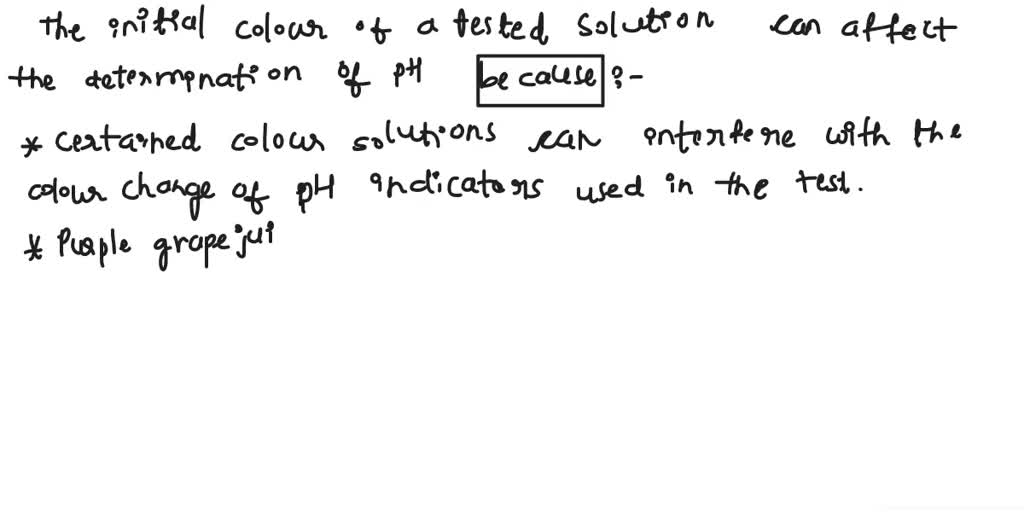 the initial colour of a tested solution can affect
the determination of pH be cause :-
* certained colour solutions can interfere with the
colour change of pH indicators used in the test.
* Purple grape jui